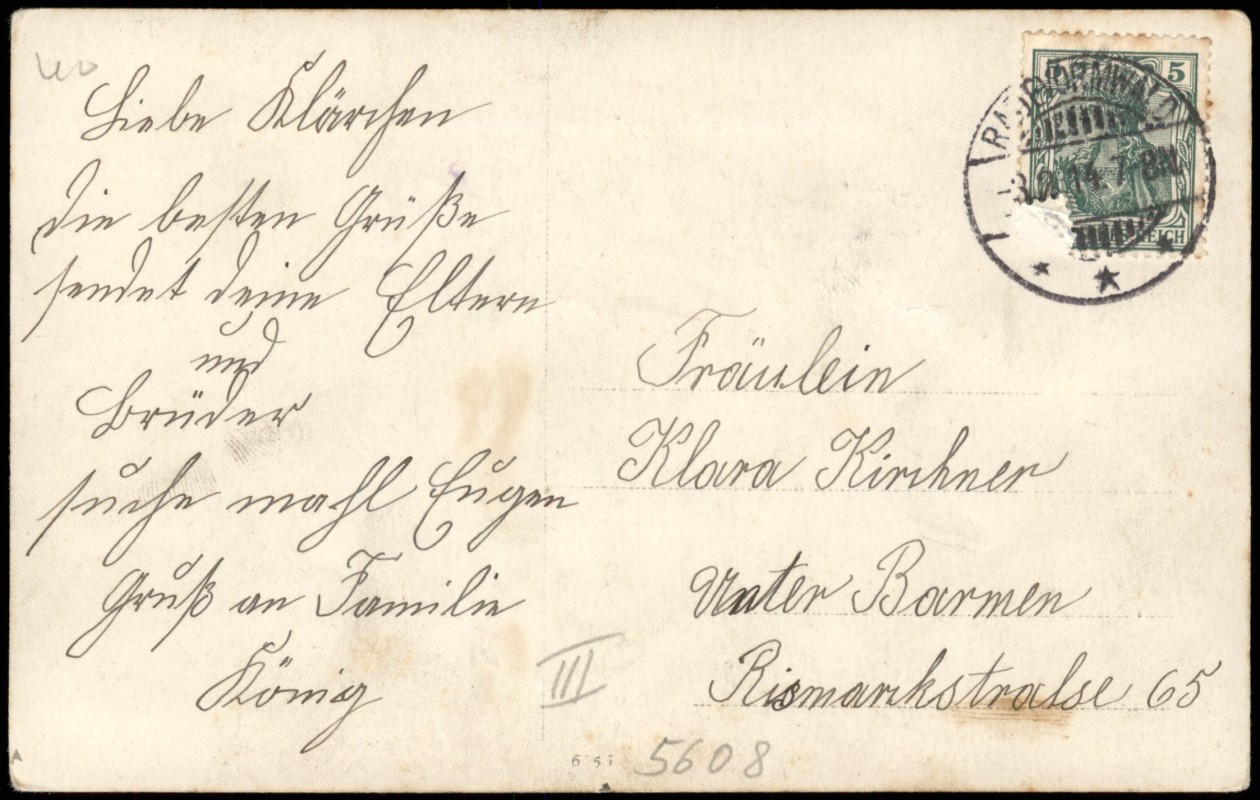 Liebe Klärchen
die besten Grüße
sendet deine Eltern
und
Brüder
suche mahl Eugen
Gruß an Familie
König
5
RADEVORMWALD
8.2.14.7-8N.
REICH
Fräulein
Klara Kirchner
Unter Barmen
Bismarkstralse 65
III
5608